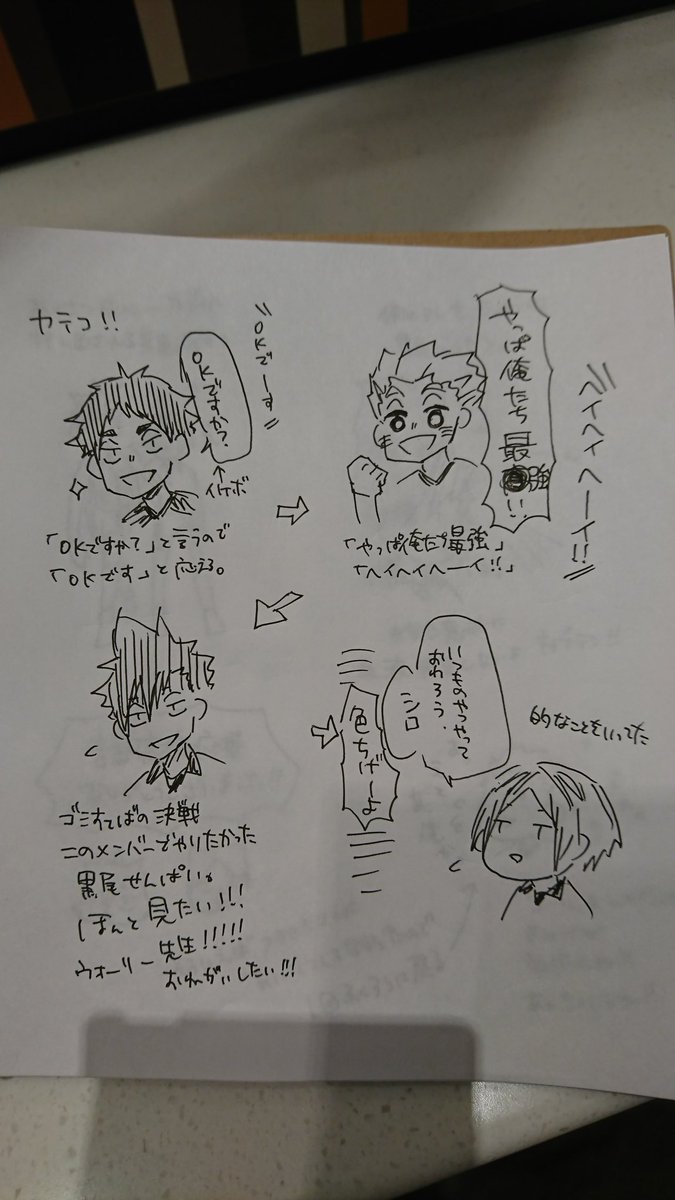 カテコ!!
OKでーす
OKですか?
↑
イケボ
「OKですか?」と言うので
「OKです」と応える。
やっぱ俺たち最強!!
ヘイヘイヘーイ!!
「やっぱ俺たち最強」
「ヘイヘイヘーイ!!」
ゴミすてばの決戦
このメンバーでやりたかった
黒尾せんぱい。
ほんと見たい!!!
ウォーリー先生!!!!!
おねがいしたい!!!
いつものやつやって
おわろう.
シロ
色ちげーよ
的なことをいってた